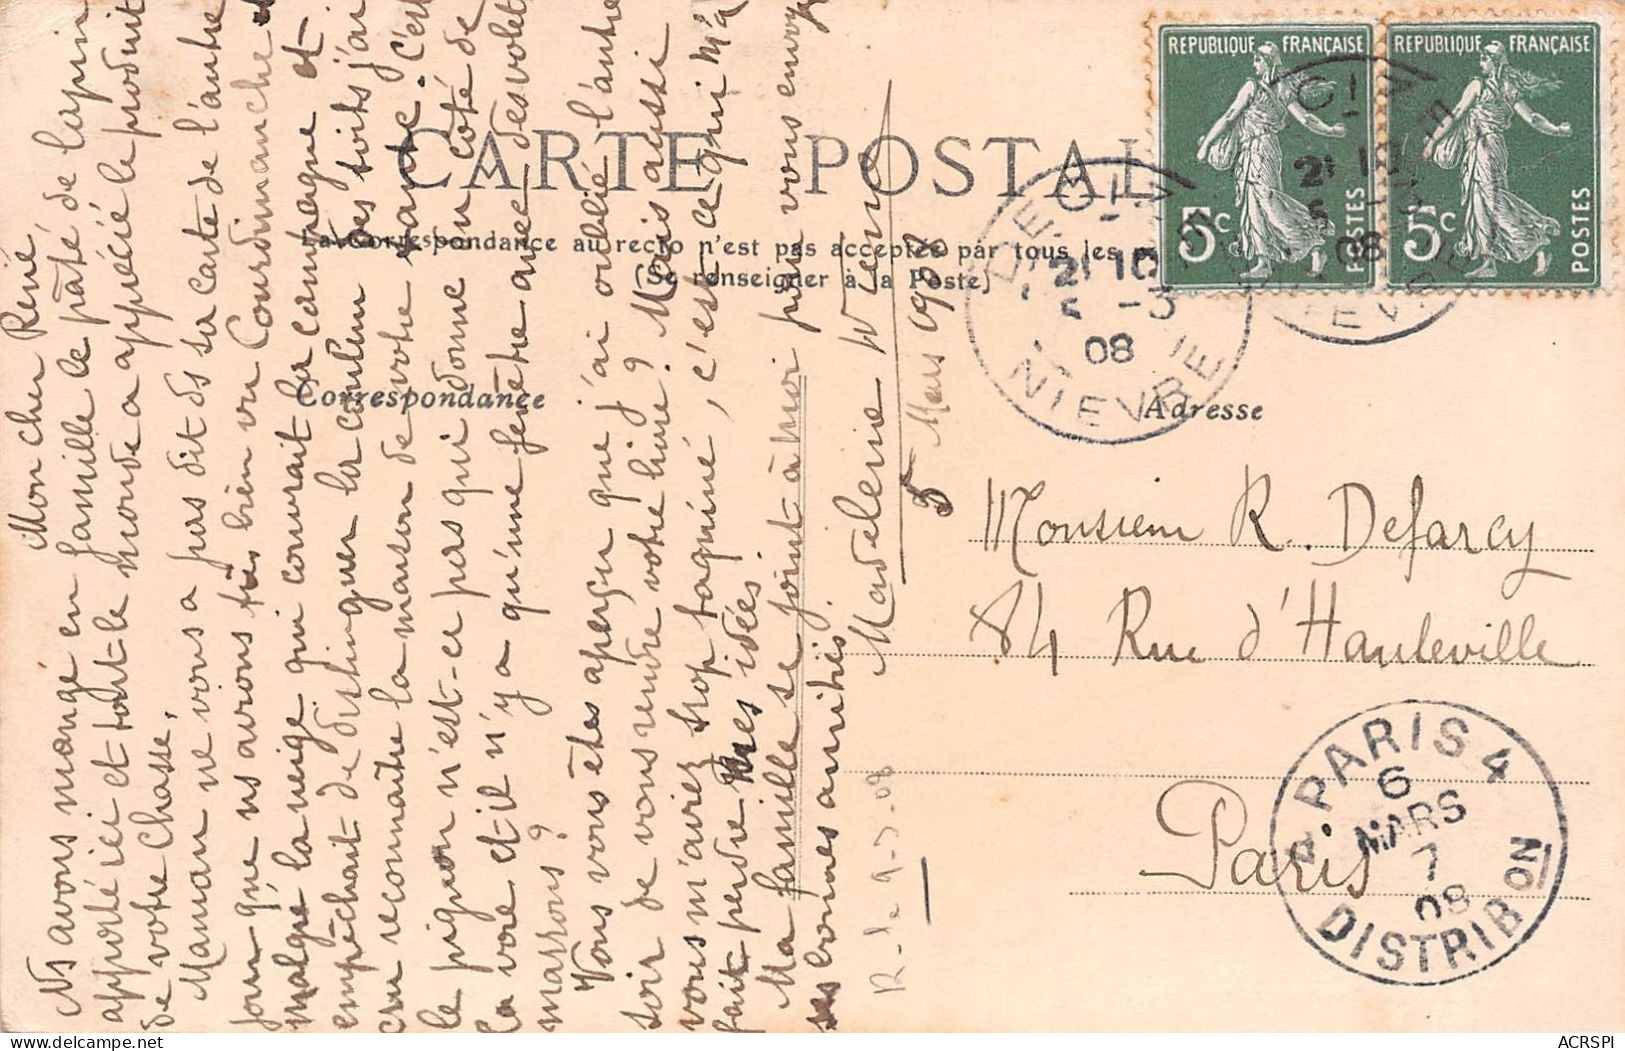 CARTE POSTALE
La Correspondance au recto n'est pas acceptée par tous les
(Se renseigner à la Poste)
Correspondance
Adresse
Mon cher René,
Ns avons mangé en famille le pâté de lapin
apporté ici et tout le monde a apprécié le produit
de votre chasse,
Maman ne vous a pas dit ds sa carte de l'autre
jour que ns avons très bien vu Courdimanche et
malgré la neige qui couvrait la campagne et
empêchait de distinguer la couleur des toits j'ai
cru reconnaître la maison de votre tante. C'est
le pignon n'est-ce pas qui donne du côté de
la voie et il n'y a qu'une fenêtre avec des volets
marrons?
Vous vous êtes aperçu que j'ai oublié l'autre
soir de vous rendre votre livre? Mais aussi
vous m'aviez trop taquiné, c'est ce qui m'a
fait perdre mes idées.
Ma famille se joint à moi pour vous envoyer
ses bonnes amitiés.
Madeleine
5 Mars 1908
Monsieur R. Defarcy
84 Rue d'Hauteville
Paris
R. le 9-3-08
REPUBLIQUE FRANÇAISE
5c
POSTES
REPUBLIQUE FRANÇAISE
5c
POSTES
21 10
5 -3
08
NIEVRE
21 10
5
08
NIEVRE
PARIS 4
6
MARS
7
08
DISTRIBON
ACRSPI